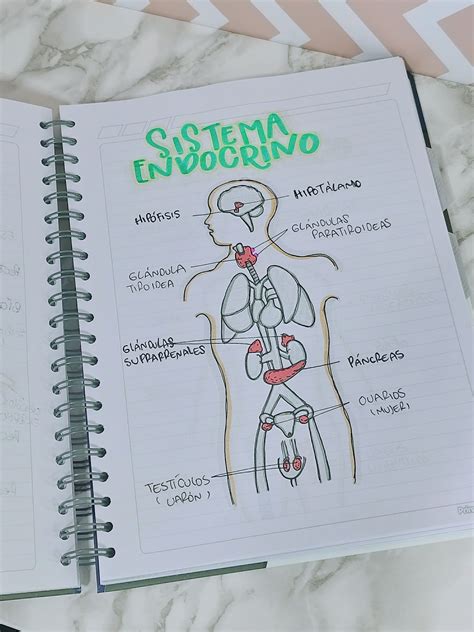 SISTEMA
ENDOCRINO
HIPÓFISIS
HIPOTÁLAMO
GLÁNDULAS
PARATIROIDEAS
GLÁNDULA
TIROIDEA
GLÁNDULAS
SUPRARRENALES
PÁNCREAS
OVARIOS
(MUJER)
TESTÍCULOS
(VARÓN)